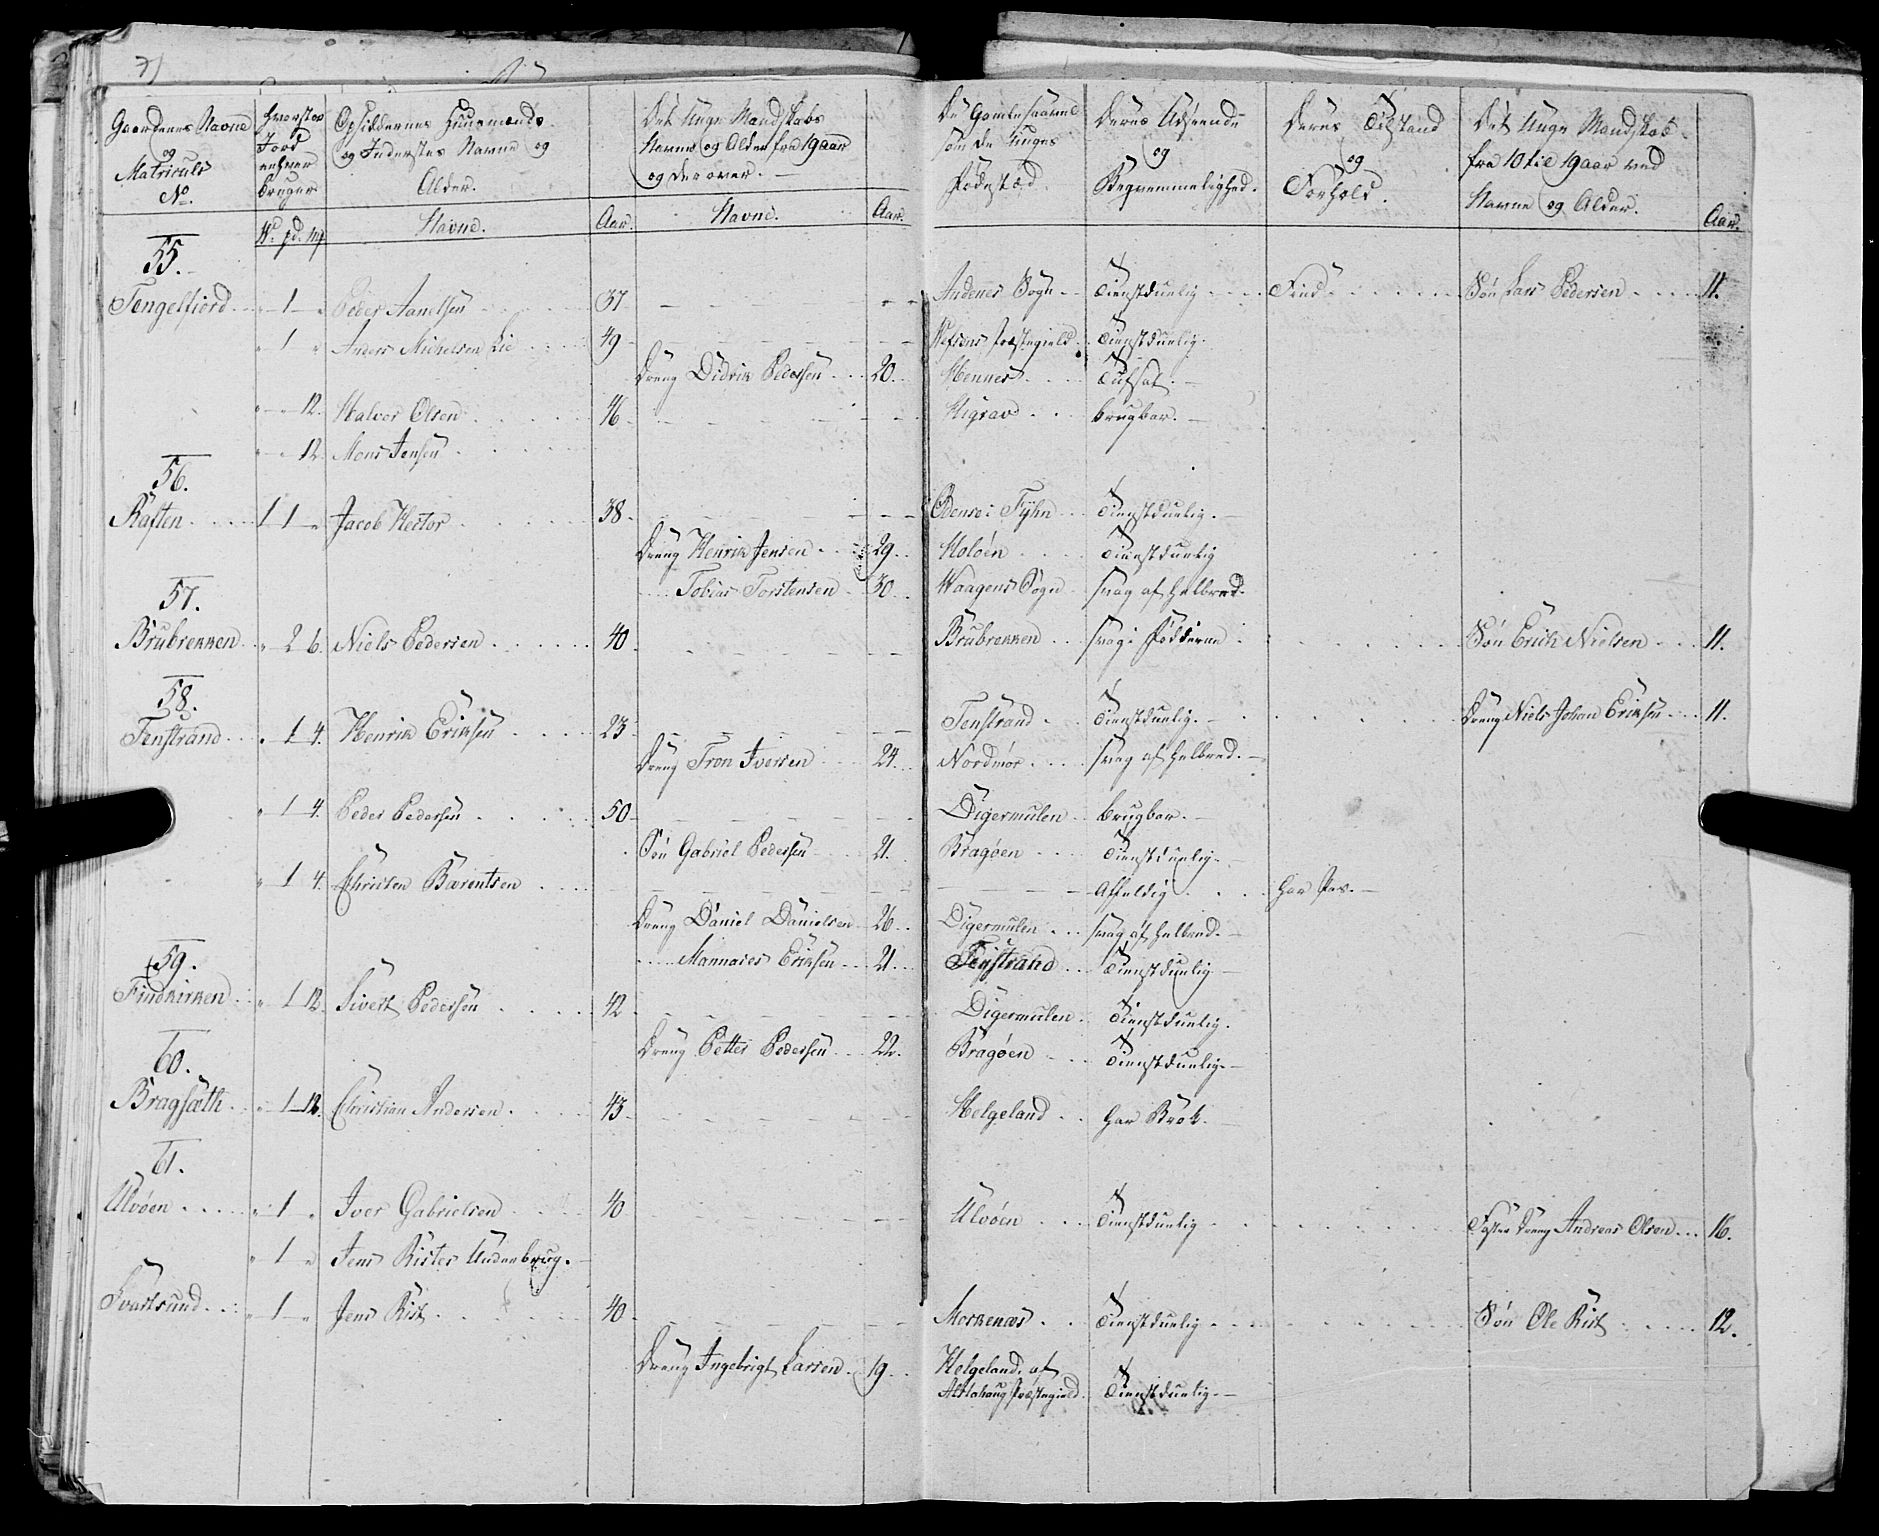 7)
Gaardenes Navne og Matriculs No.
Hvorstor Jord enhver bruger
W. pd. m&
Opsiddernes Huusmænds og Inderstes Navne og Alder.
Navne. Aar.
Det Unge Mandskabs Navne og Alder fra 19 aar og derover. —
Navne. Aar.
De Gamle saavel som de Unges Fødestæd.
Deres Udseende og Begvemmelighed.
Deres Tilstand og Forhold.
Det Unge Mandskab fra 10 til 19 aar ved Navne og Alder.
Aar.
55.
Tengelfiord " 1 " Peder Aanelsen 37 Andenes Sogn Tienstduelig Find Søn Lars Pedersen 11.
" 1 " Anders Michelsen Lie 49 Præstegield Tienstduelig.
Dreng Didrik Pedersen 20. Hennes Tufsat.
" " 12. Halvor Olsen 46 Higrav brugbar.
" " 12 Mons Jensen
56.
Raften 1 1 " Jacob Hector 38 Odense i Fyhn Tienstduelig.
Dreng Henrik Jensen 29. Holøen Tienstduelig
Tobias Torstensen 30. Waagens Sogn svag af Helbred.
57.
Brubrekken " 2 6. Niels Pedersen 40 Brubrekken svag i Fødderne Søn Erich Nielsen 11.
58.
Tenstrand " 1 4. Henrik Eriksen 23 Tenstrand Tienstduelig. Dreng Niels Johan Eriksen 11.
Dreng Tron Iversen 24. Nordmør svag af Helbred.
" 1 4. Peder Pedersen 50 Digermulen brugbar.
Søn Gabriel Pedersen 21. Bragøen Tienstduelig.
" 1 4. Christen Bærentsen Affeldig har Pas.
Dreng Daniel Danielsen 26. Digermulen svag af Helbred.
Mannases Eriksen 21. Tenstrand Tienstduelig
59.
Findkirken " 1 12. Sivert Pedersen 42 Digermulen Tienstduelig.
Dreng Petter Pedersen 22. Bragøen Tienstduelig.
60.
Bragsæth " 1 12. Christian Andersen 43 Helgeland har Brok.
61.
Ulvøen " 1 " Iver Gabrielsen 40 Ulvøen Tienstduelig Foster Dreng Andreas Olsen 16.
" 1 " Jens Rister Underbrug.
Svartsund " 1 " Jens Rist 40 Morkenæs Tienstduelig Søn Ole Rist 12.
Dreng Ingebrigt Larsen 19. Helgeland af
Alstahaug Præstegield Tienstduelig.